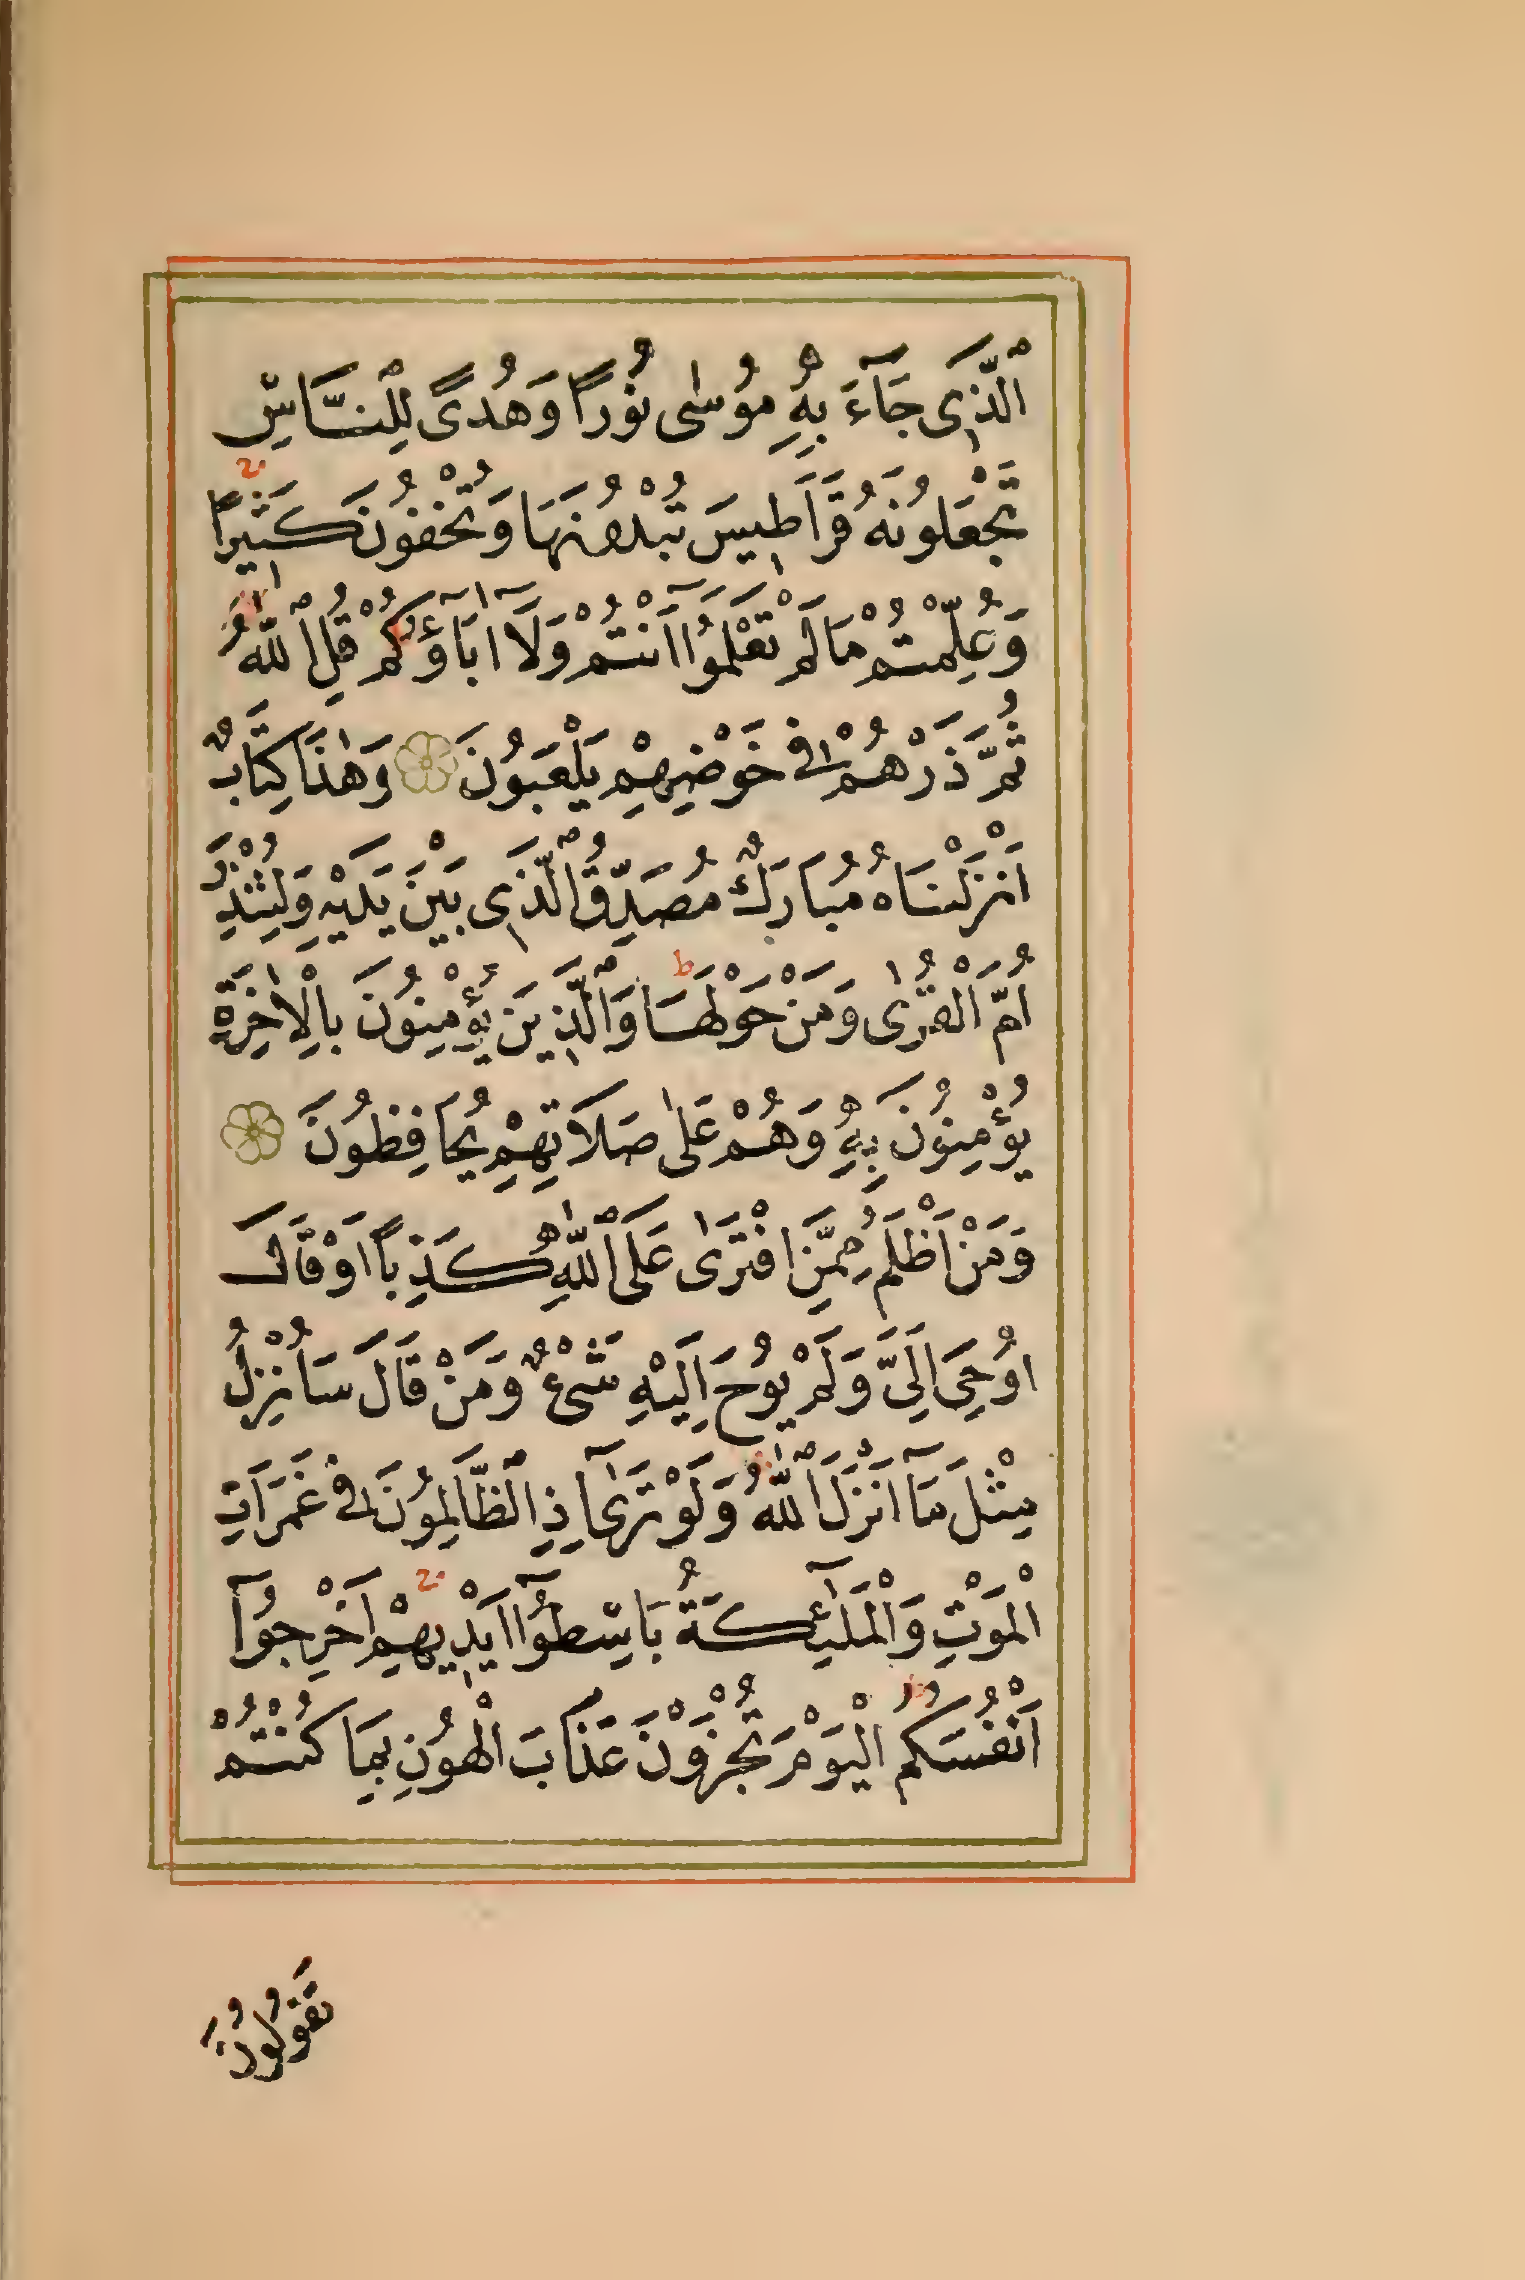 الَّذِى جَآءَ بِهِ مُوسٰى نُورًا وَهُدًى لِلنَّاسِ
تَجْعَلُونَهُ قَرَاطِيسَ تُبْدُونَهَا وَتُخْفُونَ كَثِيرًا
وَعُلِّمْتُمْ مَا لَمْ تَعْلَمُوا اَنْتُمْ وَلَآ اٰبَآؤُكُمْ قُلِ اللّٰهُ
ثُمَّ ذَرْهُمْ فِى خَوْضِهِمْ يَلْعَبُونَ وَهٰذَا كِتَابٌ
اَنْزَلْنَاهُ مُبَارَكٌ مُصَدِّقُ الَّذِى بَيْنَ يَدَيْهِ وَلِتُنْذِرَ
اُمَّ الْقُرٰى وَمَنْ حَوْلَهَا وَالَّذِينَ يُؤْمِنُونَ بِالْاٰخِرَةِ
يُؤْمِنُونَ بِهِ وَهُمْ عَلٰى صَلَاتِهِمْ يُحَافِظُونَ
وَمَنْ اَظْلَمُ مِمَّنِ افْتَرٰى عَلَى اللّٰهِ كَذِبًا اَوْ قَالَ
اُوحِىَ اِلَىَّ وَلَمْ يُوحَ اِلَيْهِ شَىْءٌ وَمَنْ قَالَ سَاُنْزِلُ
مِثْلَ مَآ اَنْزَلَ اللّٰهُ وَلَوْ تَرٰىٓ اِذِ الظَّالِمُونَ فِى غَمَرَاتِ
الْمَوْتِ وَالْمَلٰٓئِكَةُ بَاسِطُوٓا اَيْدِيهِمْ اَخْرِجُوٓا
اَنْفُسَكُمُ الْيَوْمَ تُجْزَوْنَ عَذَابَ الْهُونِ بِمَا كُنْتُمْ
تَقُولُونَ